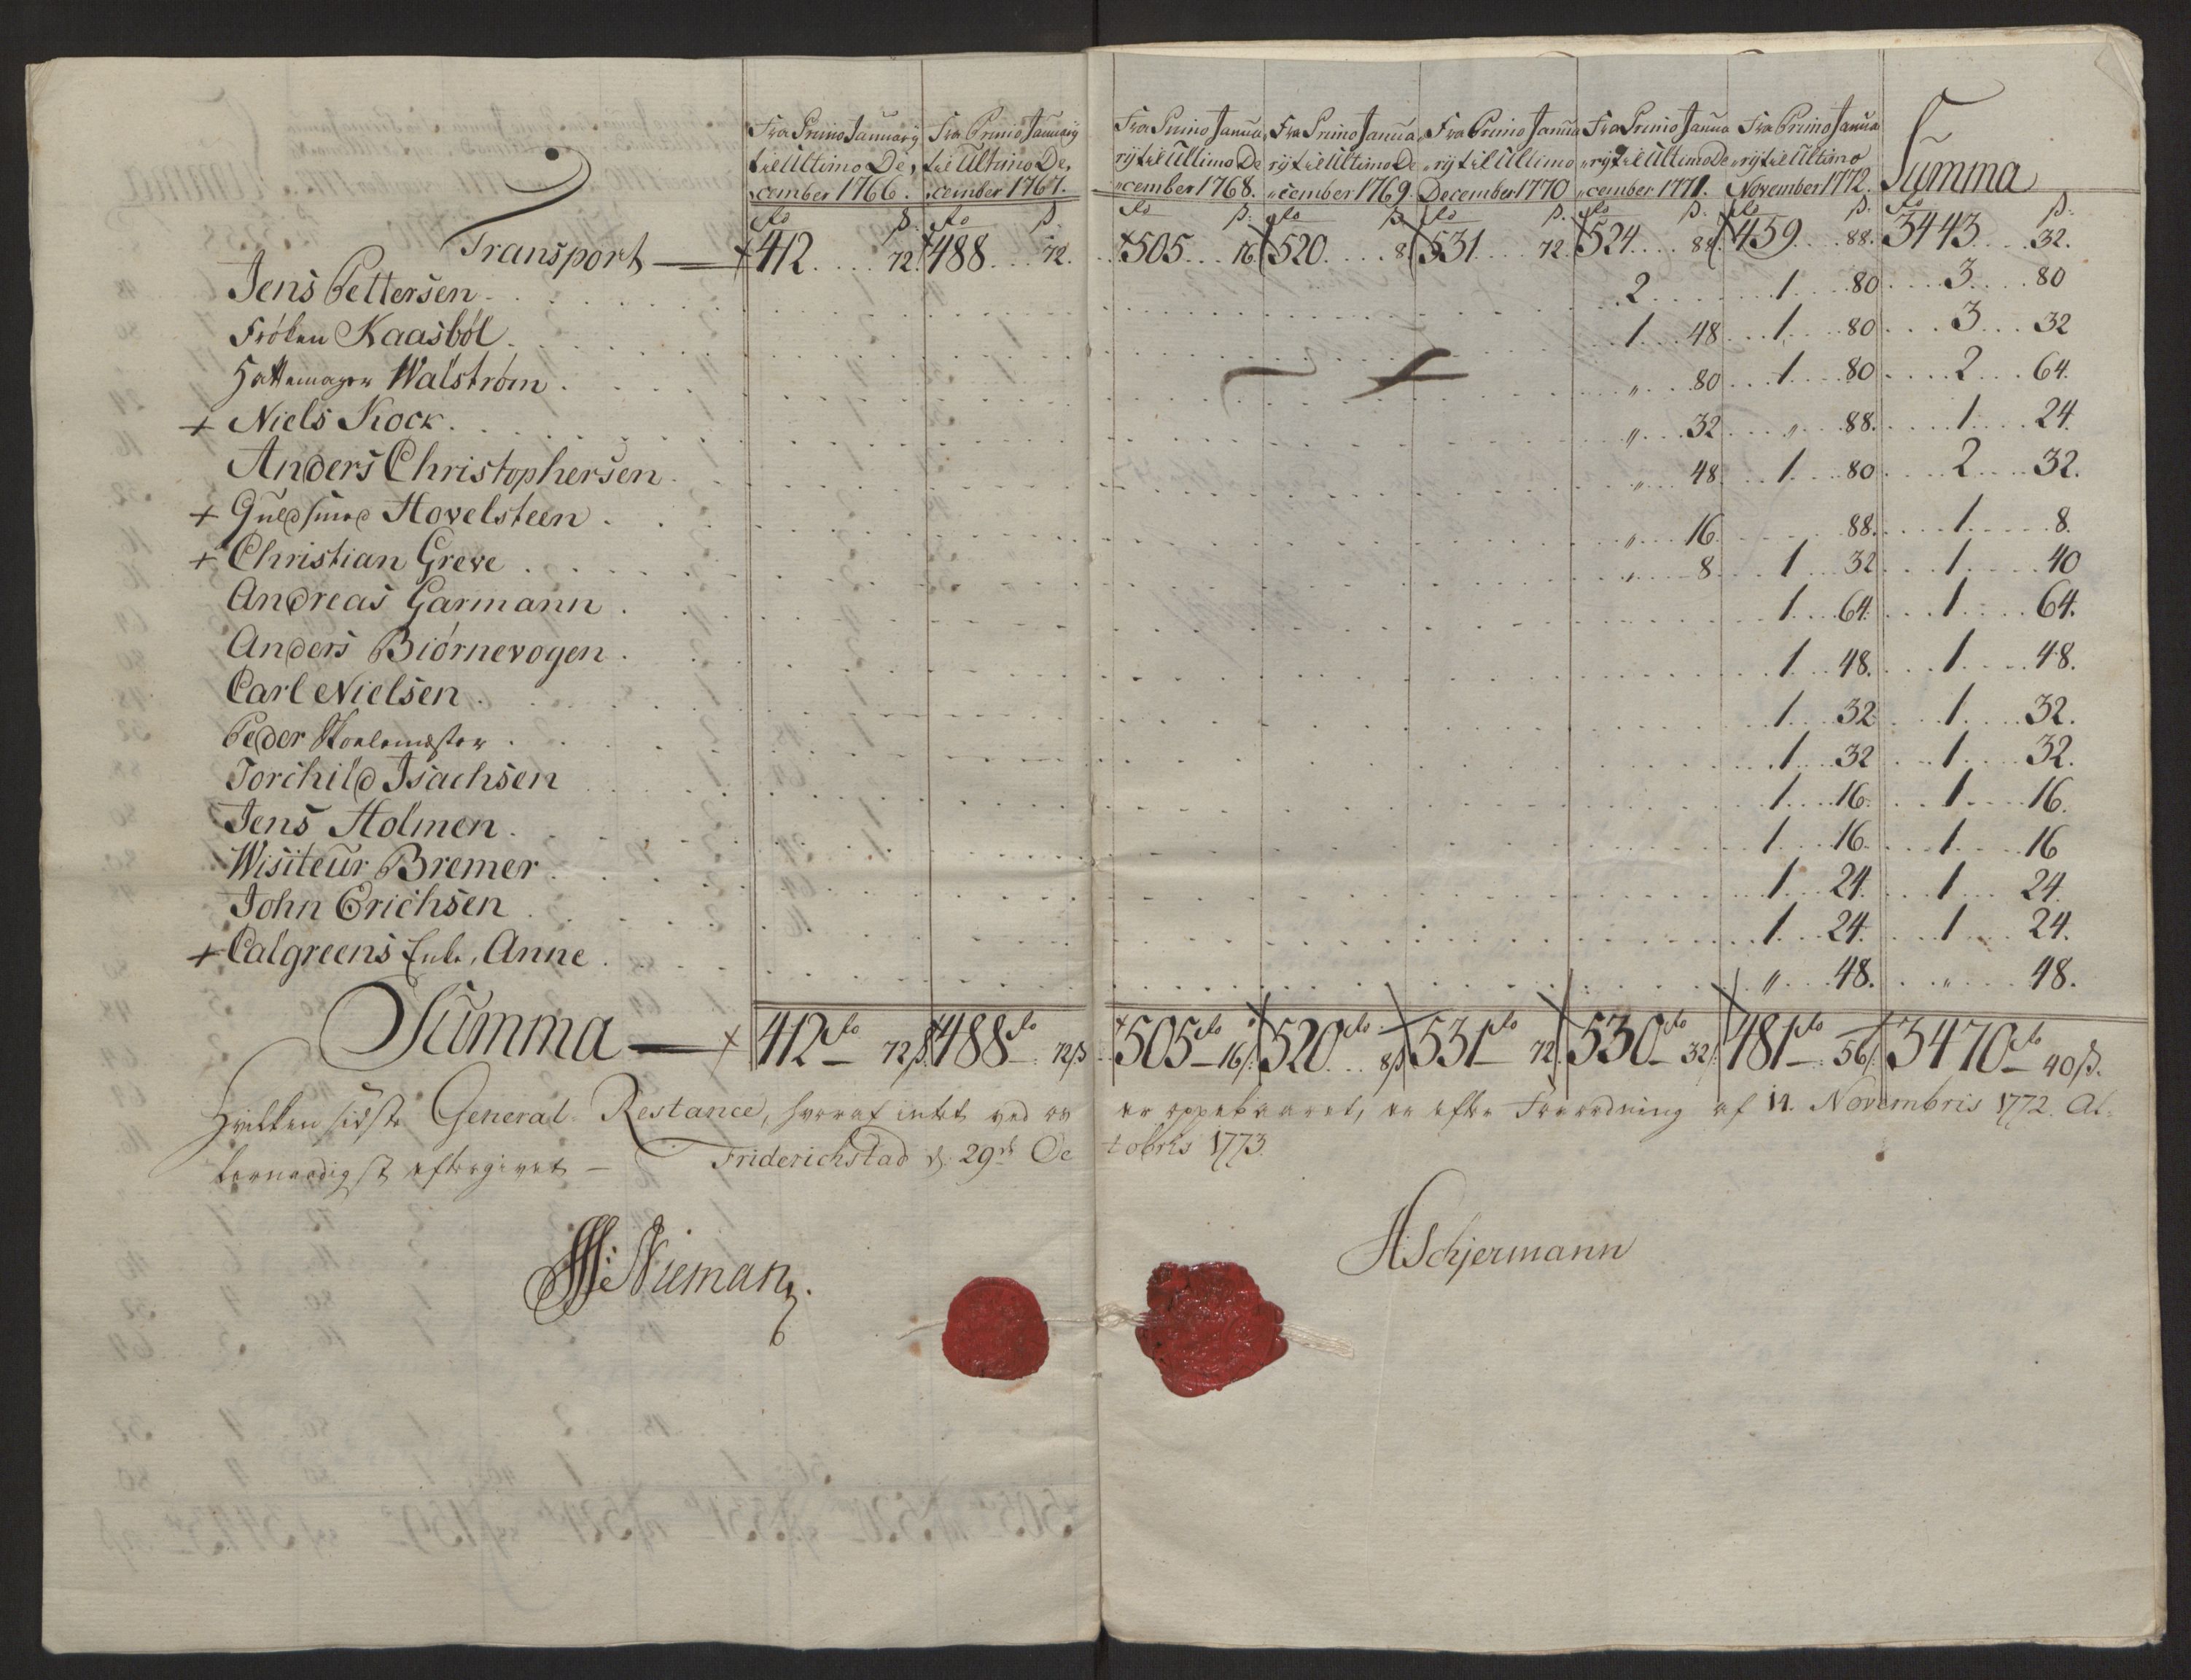 Fra Primo January til Ultimo De,,cember 1766. Fra Primo January til Ultimo De,,cember 1767. Fra Primo Janua,,rij til Ultimo De,,cember 1768. Fra Primo Janua,,rij til Ultimo De,,cember 1769. Fra Primo Janua,,rij til Ultimo December 1770 Fra Primo Janua,,rij til Ultimo De,,cember 1771. Fra Primo Janua,,rij til Ultimo November 1772. Summa
Transport — 412 72. 488 72. 505 16. 520 8. 531 72. 524 88. 459 88. 3443 32.
Jens Pettersen 2 1 80 3 80
Frøken Kaasbøl 1 48 1 80 3 32
Hattemager Walstrøm " 80 1 80 2 64.
+ Niels Kock " 32 " 88. 1 24.
Anders Christophersen " 48 1 80 2 32.
+ Guldsmed Hovelsteen " 16 88. 1 8.
+ Christian Greve " 8 1 32 1 40
Andreas Garmann 1 64. 1 64.
Anders Biørnevogen 1 48. 1 48.
Carl Nielsen 1 32 1 32.
Peder Skolemester 1 32 1 32.
Torchild Isachsen 1 16. 1 16.
Jens Holmen 1 16. 1 16
Wisiteur Bremer 1 24. 1 24.
John Erichsen 1 24. 1 24.
+ Calgreens Enke, Anne " 48. " 48.
Summa — 412 rd 72 ß 488 rd 72 ß 505 rd 16 ß 520 rd 8 ß 531 rd 72. 530 rd 32 481 rd 56 3470 rd 40 ß.
Hvilken sidste General Restance, hvoraf intet ved os er oppebaaret, er efter Forordning af 14. Novembris 1772. Al-
lernaadigst eftergivet — Friderichstad d. 29de Octobris 1773.
Nieman
HSchjermann